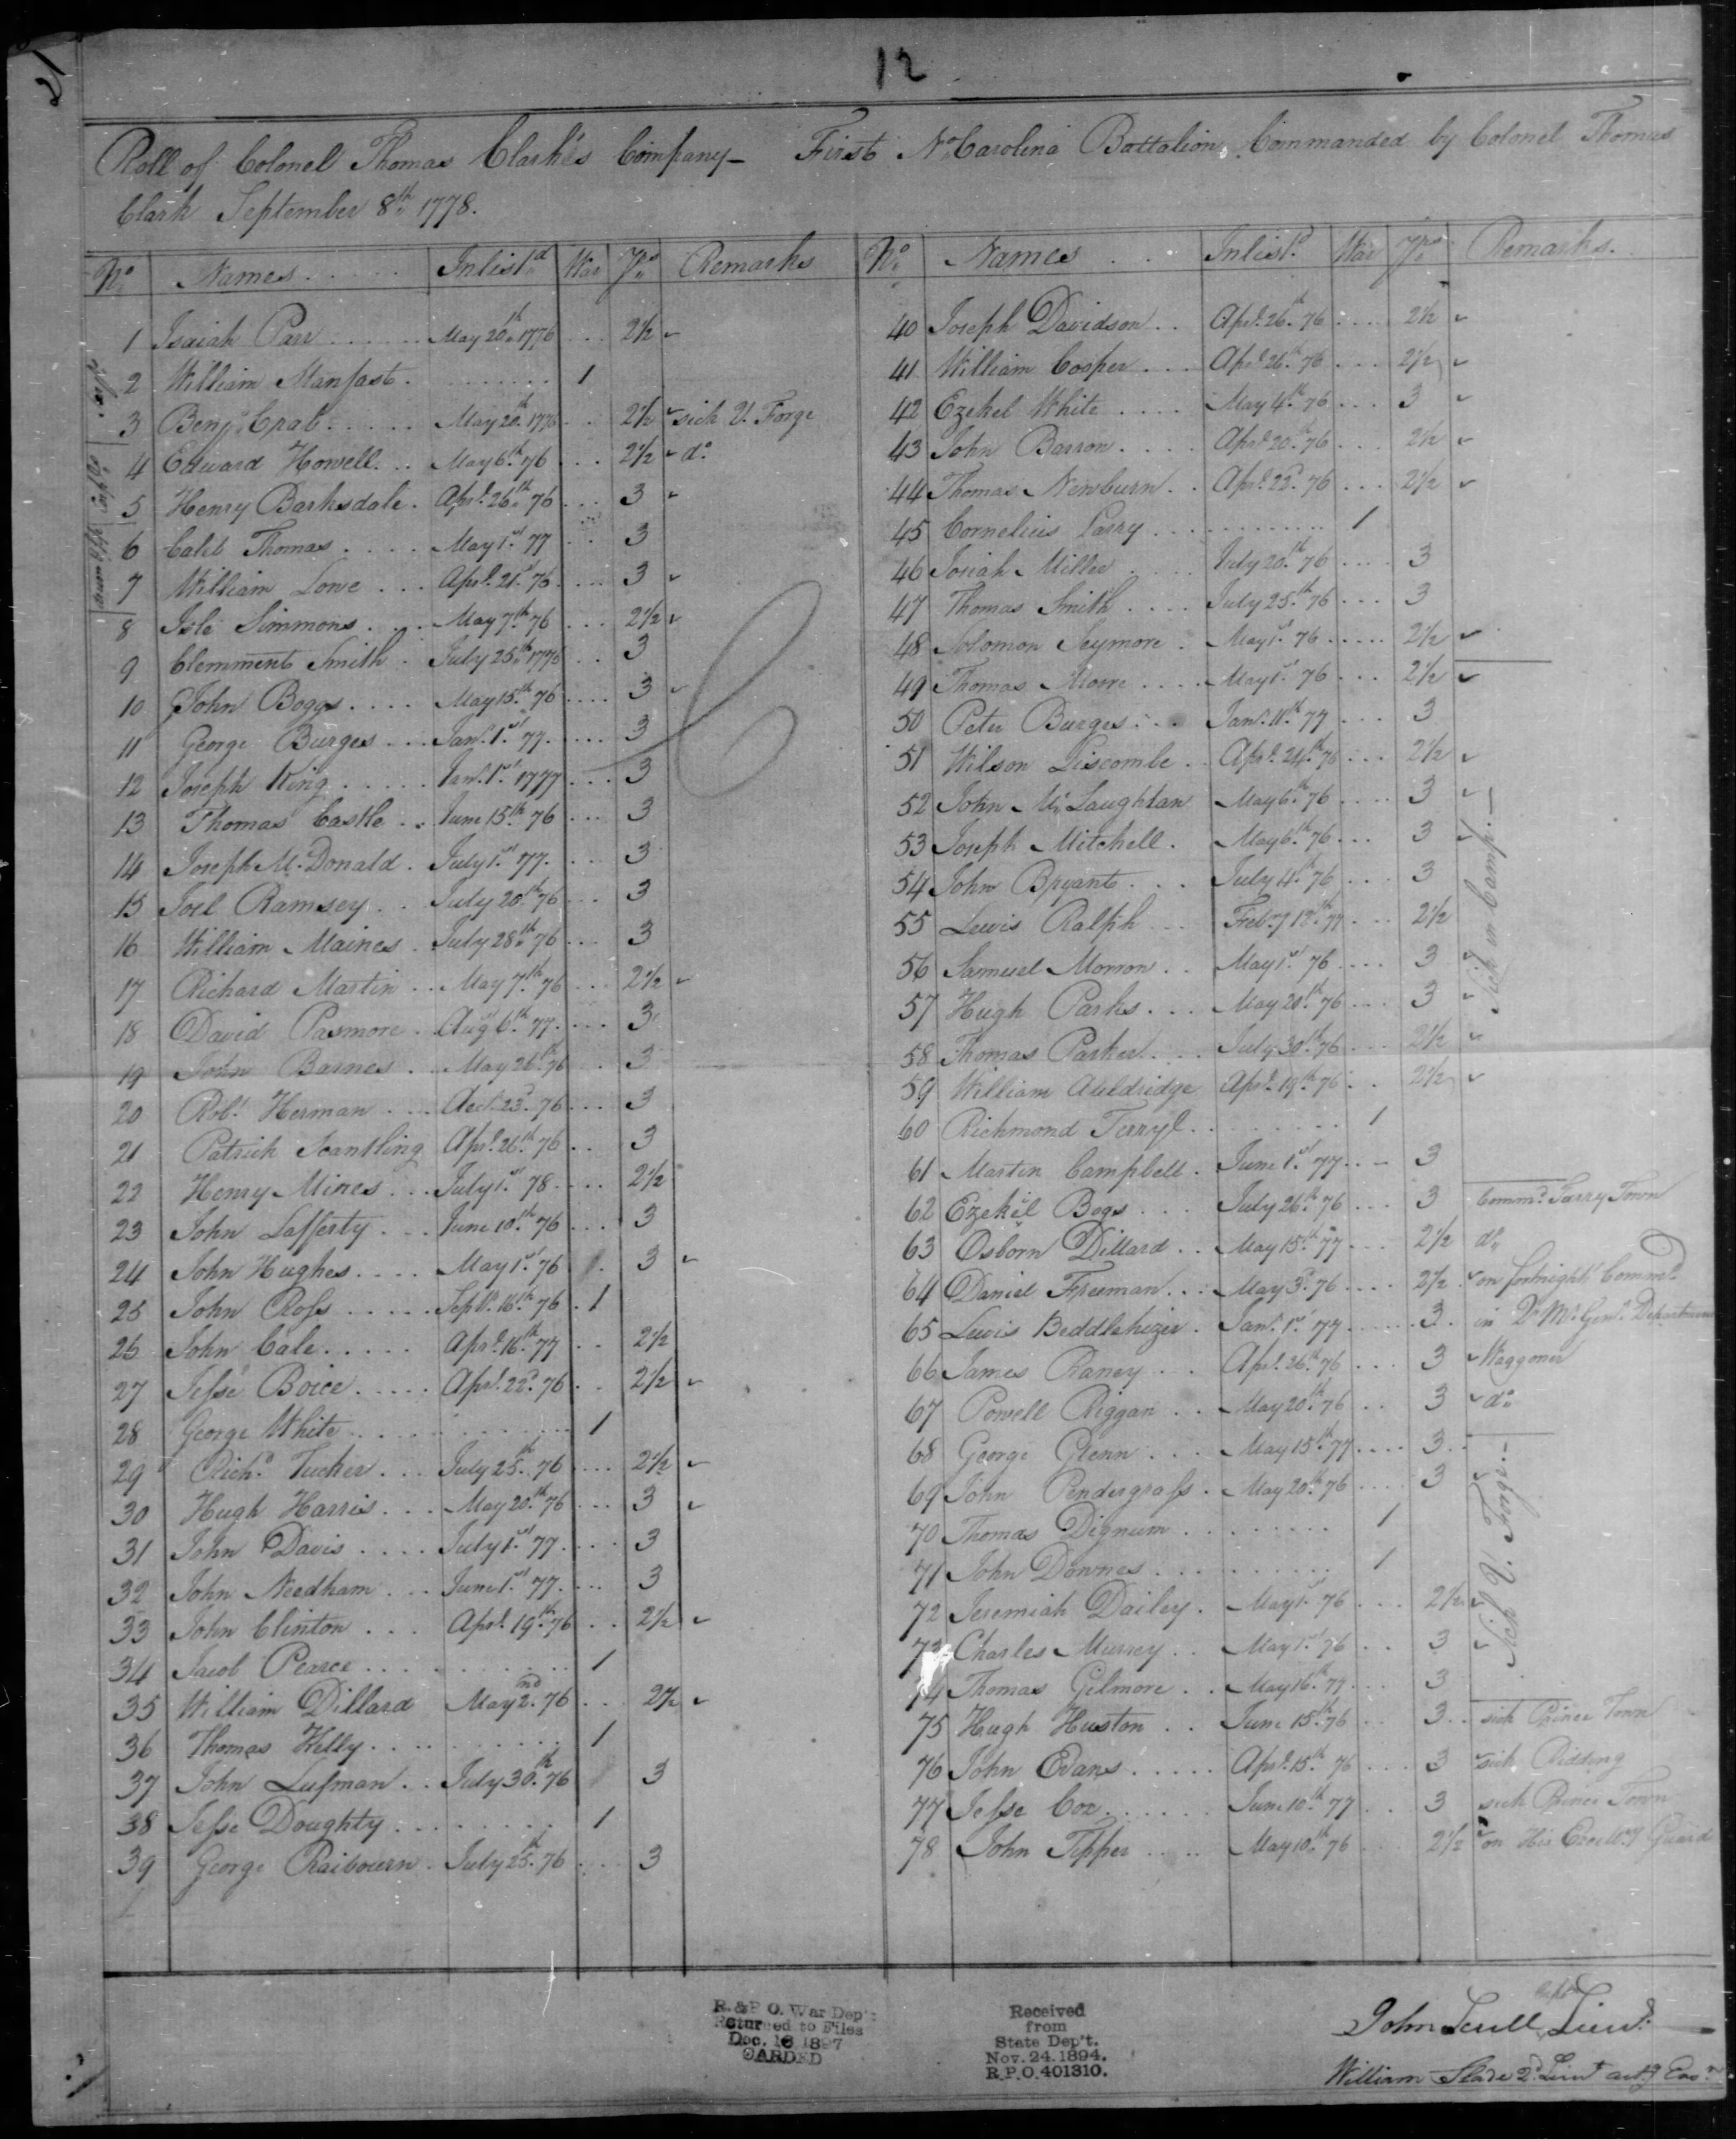 12
Roll of Colonel Thomas Clark's Company — First No. Carolina Battalion, Commanded by Colonel Thomas
Clark September 8th 1778.
No. Names Inlistd War Yrs Remarks
1 Isaiah Parr May 20th 1776 2½ ✓
2 William Manfast 1
3 Benjn Crab May 20th 1776 2½ ✓ sick V. Forge
4 Edward Howell May 6th 76 2½ ✓ do
5 Henry Barksdale Aprl 26th 76 3 ✓
6 Caleb Thomas May 1st 77 3
7 William Lowe Aprl 21st 76 3 ✓
8 Isle Simmons May 7th 76 2½ ✓
9 Clemment Smith July 25th 1776 3
10 John Boggs May 15th 76 3 ✓
11 George Burges Jany 1st 77 3
12 Joseph King Jany 1st 1777 3
13 Thomas Castle June 15th 76 3
14 Joseph McDonald July 1st 77 3
15 Joel Ramsey July 20th 76 3
16 William Maines July 28th 76 3
17 Richard Martin May 7th 76 2½ ✓
18 David Pasmore Augt 6th 77 3
19 John Barnes May 26th 76 3
20 Robt Herman 23d 76 3
21 Patrick Scantling Aprl 26th 76 3
22 Henry Mires July 1st 78 2½
23 John Lafferty June 10th 76 3
24 John Hughes May 1st 76 3 ✓
25 John Ross Septr 16th 76 1
26 John Cale Aprl 16th 77 2½
27 Jesse Boice Aprl 22d 76 2½ ✓
28 George White 1
29 Richd Tucker July 25th 76 2½ ✓
30 Hugh Harris May 20th 76 3 ✓
31 John Davis July 1st 77 3
32 John Needham June 1st 77 3
33 John Clinton Aprl 19th 76 2½ ✓
34 Jacob Pearce 1
35 William Dillard May 2nd 76 2½ ✓
36 Thomas Kelly 1
37 John Lufman July 30th 76 3
38 Jesse Doughty 1
39 George Raibourn July 25th 76 3
No. Names Inlistd War Yrs Remarks.
40 Joseph Davidson Aprl 26th 76 2½ ✓
41 William Cooper Aprl 26th 76 2½ ✓
42 Ezekel White May 4th 76 3 ✓
43 John Barron Aprl 20th 76 2½ ✓
44 Thomas Newburn Aprl 22d 76 2½ ✓
45 Cornelius Parry 1
46 Josiah Miller July 20th 76 3
47 Thomas Smith July 25th 76 3
48 Solomon Seymore May 1st 76 2½ ✓
49 Thomas Morre May 1st 76 2½ ✓
50 Peter Burges Jany 11th 77 3
51 Wilson Liscombe Aprl 24th 76 2½ ✓
52 John McLaughlan May 6th 76 3 ✓
53 Joseph Mitchell May 6th 76 3 ✓
54 John Bryant July 4th 76 3
55 Lewis Ralph Feby 12th 77 2½
56 Samuel Morron May 1st 76 3 ✓
57 Hugh Parks May 20th 76 3 ✓
58 Thomas Parker July 30th 76 2½ ✓
Sick in Camp
59 William Auldridge Aprl 19th 76 2½ ✓
60 Richmond Terryl 1
61 Martin Campbell June 1st 77 3
62 Ezekiel Bogs July 26th 76 3 Commd Tarry Town
63 Osborn Dillard May 15th 77 2½ do
64 Daniel Freeman May 3d 76 2½ ✓ on fortnights Commd
65 Lewis Beddlehizer Jany 1st 77 3 in Qr Mr Genl Department
66 James Raney Aprl 26th 76 3 ✓ Waggoner
67 Powell Riggan May 20th 76 3 ✓ do
68 George Glenn May 15th 77 3
69 John Pendergrass May 20th 76 3
70 Thomas Dignum 1
71 John Downes 1
72 Jeremiah Dailey May 1st 76 2½ ✓
73 Charles Murrey May 1st 76 3 ✓
74 Thomas Gilmore May 16th 77 3
Sick V. Forge
75 Hugh Huston June 15th 76 3 sick Prince Town
76 John Evans Aprl 15th 76 3 ✓ sick Ridding
77 Jesse Cox June 10th 77 3 sick Prince Town
78 John Tipper May 10th 76 2½ ✓ on His Excellys Guard
R. & P. O. War Dep't:
Returned to Files
Dec. 16 1897
CARDED
Received
from
State Dep't.
Nov. 24. 1894.
R.P.O. 401310.
Capt
John Lieut.
William Slade 2d Lieut